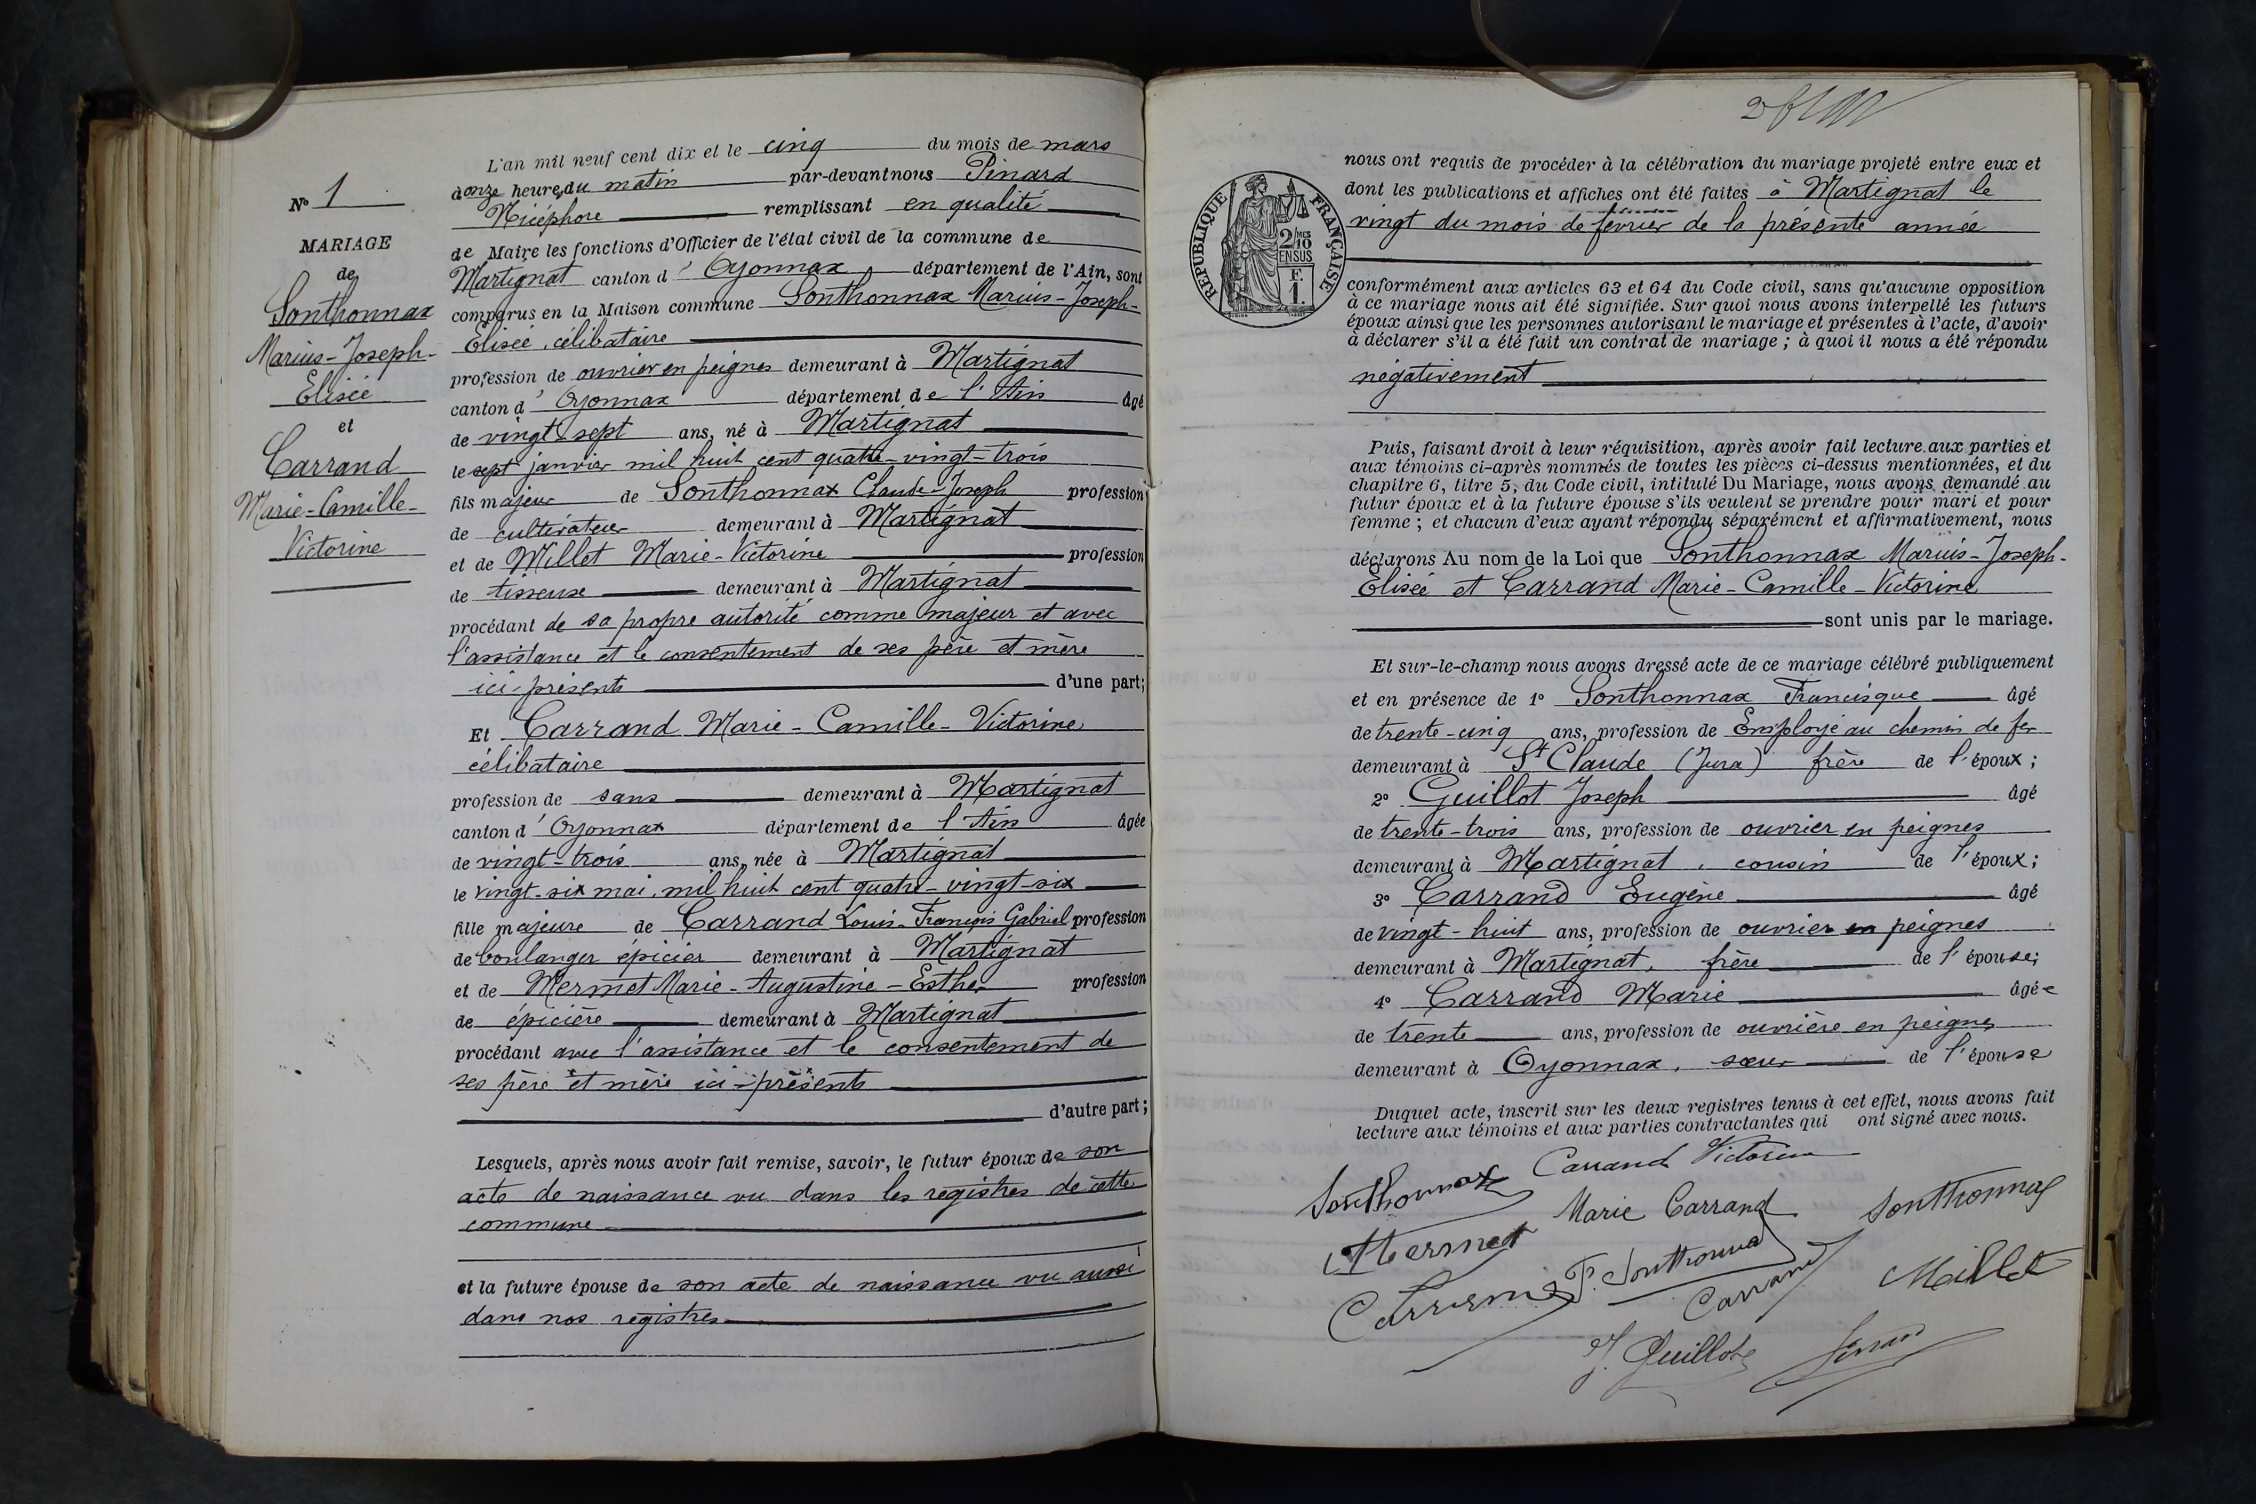 N° 1
MARIAGE
de
Sonthonnax
Marius-Joseph-
Elisée
et
Carrand
Marie-Camille-
Victorine
L'an mil neuf cent dix et le cinq du mois de mars
à onze heures du matin par-devant nous Pinard
Nicéphore remplissant en qualité
de Maire les fonctions d'Officier de l'état civil de la commune de
Martignat canton d' Oyonnax département de l'Ain, sont
comparus en la Maison commune Sonthonnax Marius-Joseph-
Elisée, célibataire
profession de ouvrier en peignes demeurant à Martignat
canton d' Oyonnax département de l'Ain âgé
de vingt-sept ans, né à Martignat
le sept janvier mil huit cent quatre-vingt-trois
fils majeur de Sonthonnax Claude-Joseph profession
de cultivateur demeurant à Martignat
et de Millet Marie-Victorine profession
de tisseuse demeurant à Martignat
procédant de sa propre autorité comme majeur et avec
l'assistance et le consentement de ses père et mère
ici-présents d'une part;
Et Carrand Marie-Camille-Victorine
célibataire
profession de sans demeurant à Martignat
canton d' Oyonnax département de l'Ain âgée
de vingt-trois ans, née à Martignat
le vingt-six mai, mil huit cent quatre-vingt-six
fille majeure de Carrand Louis-François Gabriel profession
de boulanger épicier demeurant à Martignat
et de Mermet Marie-Augustine-Esther profession
de épicière demeurant à Martignat
procédant avec l'assistance et le consentement de
ses père et mère ici-présents
d'autre part;
Lesquels, après nous avoir fait remise, savoir, le futur époux de son
acte de naissance vu dans les registres de cette
commune
et la future épouse de son acte de naissance vu aussi
dans nos registres
RÉPUBLIQUE FRANÇAISE
2/10 MES
EN SUS
F.
1.
nous ont requis de procéder à la célébration du mariage projeté entre eux et
dont les publications et affiches ont été faites à Martignat le
vingt du mois de février de la présente année
conformément aux articles 63 et 64 du Code civil, sans qu'aucune opposition
à ce mariage nous ait été signifiée. Sur quoi nous avons interpellé les futurs
époux ainsi que les personnes autorisant le mariage et présentes à l'acte, d'avoir
à déclarer s'il a été fait un contrat de mariage; à quoi il nous a été répondu
négativement
Puis, faisant droit à leur réquisition, après avoir fait lecture aux parties et
aux témoins ci-après nommés de toutes les pièces ci-dessus mentionnées, et du
chapitre 6, titre 5, du Code civil, intitulé Du Mariage, nous avons demandé au
futur époux et à la future épouse s'ils veulent se prendre pour mari et pour
femme; et chacun d'eux ayant répondu séparément et affirmativement, nous
déclarons Au nom de la Loi que Sonthonnax Marius-Joseph-
Elisée et Carrand Marie-Camille-Victorine
sont unis par le mariage.
Et sur-le-champ nous avons dressé acte de ce mariage célébré publiquement
et en présence de 1° Sonthonnax Francisque âgé
de trente-cinq ans, profession de Employé au chemin de fer
demeurant à St Claude (Jura) frère de l'époux;
2° Guillot Joseph âgé
de trente-trois ans, profession de ouvrier en peignes
demeurant à Martignat, cousin de l'époux;
3° Carrand Eugène âgé
de vingt-huit ans, profession de ouvrier en peignes
demeurant à Martignat, frère de l'épouse;
4° Carrand Marie âgée
de trente ans, profession de ouvrière en peignes
demeurant à Oyonnax, sœur de l'épouse
Duquel acte, inscrit sur les deux registres tenus à cet effet, nous avons fait
lecture aux témoins et aux parties contractantes qui ont signé avec nous.
Sonthonnax Carrand Victorine
Marie Carrand Sonthonnax
Mermet
F. Sonthonnax
Carrand Millet
J. Guillot Pinard